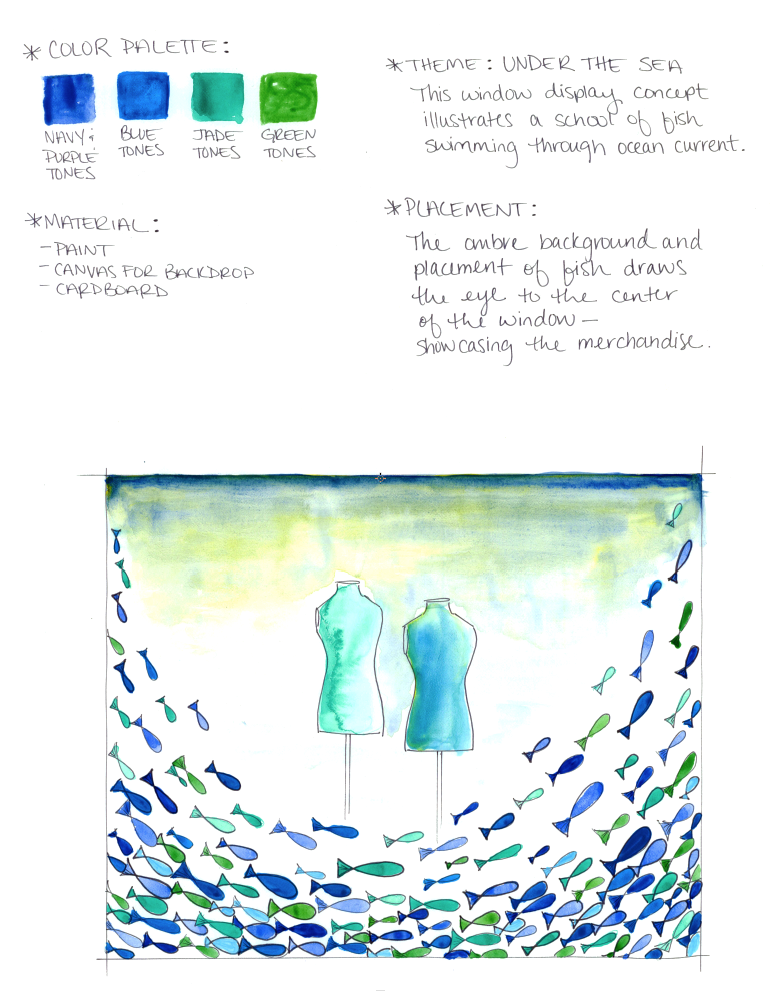 * COLOR PALETTE:
NAVY &
PURPLE
TONES
BLUE
TONES
JADE
TONES
GREEN
TONES
* MATERIAL:
- PAINT
- CANVAS FOR BACKDROP
- CARDBOARD
* THEME: UNDER THE SEA
This window display concept
illustrates a school of fish
swimming through ocean current.
* PLACEMENT:
The ombre background and
placement of fish draws
the eye to the center
of the window –
showcasing the merchandise.